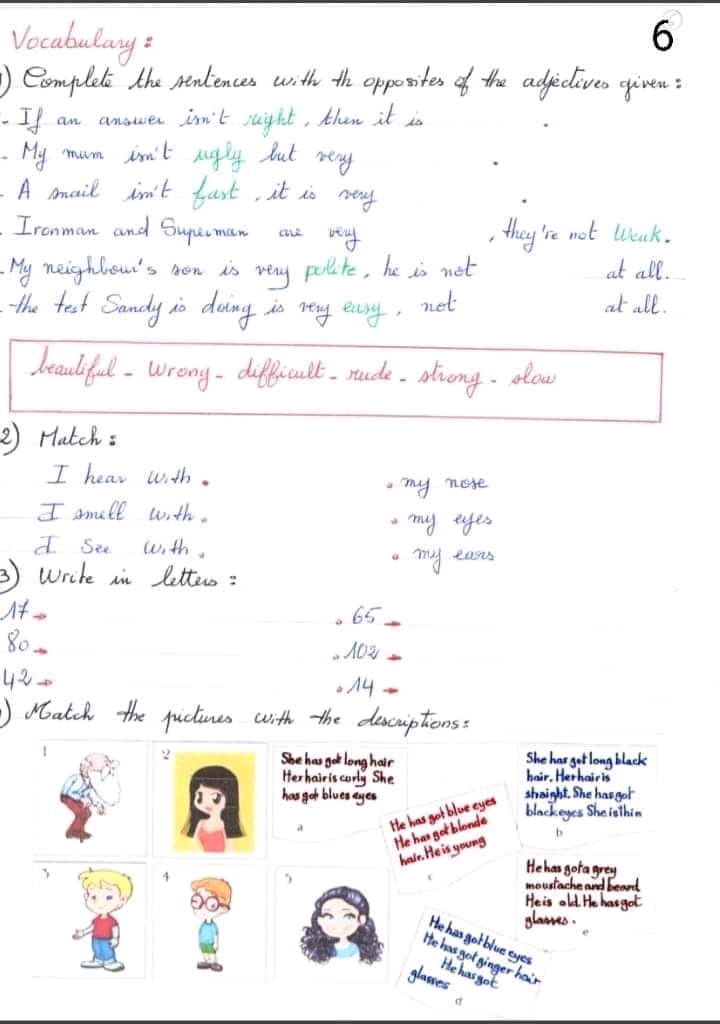 6
Vocabulary :
1) Complete the sentences with th opposites of the adjectives given :
- If an answer isn't right, then it is .
- My mum isn't ugly but very .
- A snail isn't fast, it is very .
- Ironman and Superman are very , they're not Weak.
- My neighbour's son is very polite, he is not at all.
- the test Sandy is doing is very easy, not at all.
beautiful - Wrong - difficult - rude - strong - slow
2) Match :
I hear with . . my nose
I smell with . . my eyes
I see with . . my ears
3) Write in letters :
17 → . 65 →
80 → . 102 →
42 → . 14 →
) Match the pictures with the descriptions :
1
2
She has got long hair
Her hair is curly She
has got blues eyes
a
He has got blue eyes
He has got blonde
hair. He is young
c
She has got long black
hair. Her hair is
straight. She has got
black eyes She is thin
b
3
4
5
He has got a grey
moustache and beard
He is old. He has got
glasses.
e
He has got blue eyes
He has got ginger hair
He has got
glasses
d